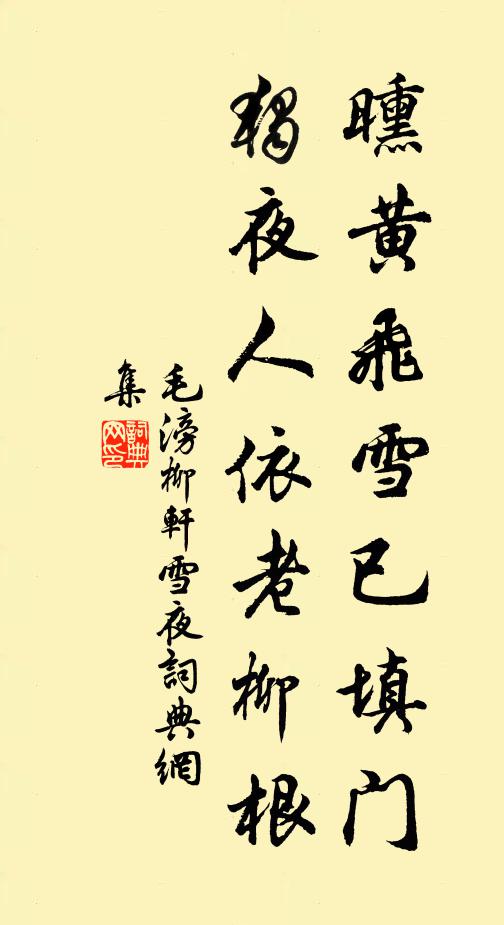 曛黄飛雪已填门
獨夜人依老柳根
毛滂柳軒雪夜詞典網
集
詞典
网印